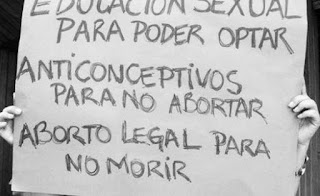 EDUCACIÓN SEXUAL
PARA PODER OPTAR
ANTICONCEPTIVOS
PARA NO ABORTAR
ABORTO LEGAL PARA
NO MORIR